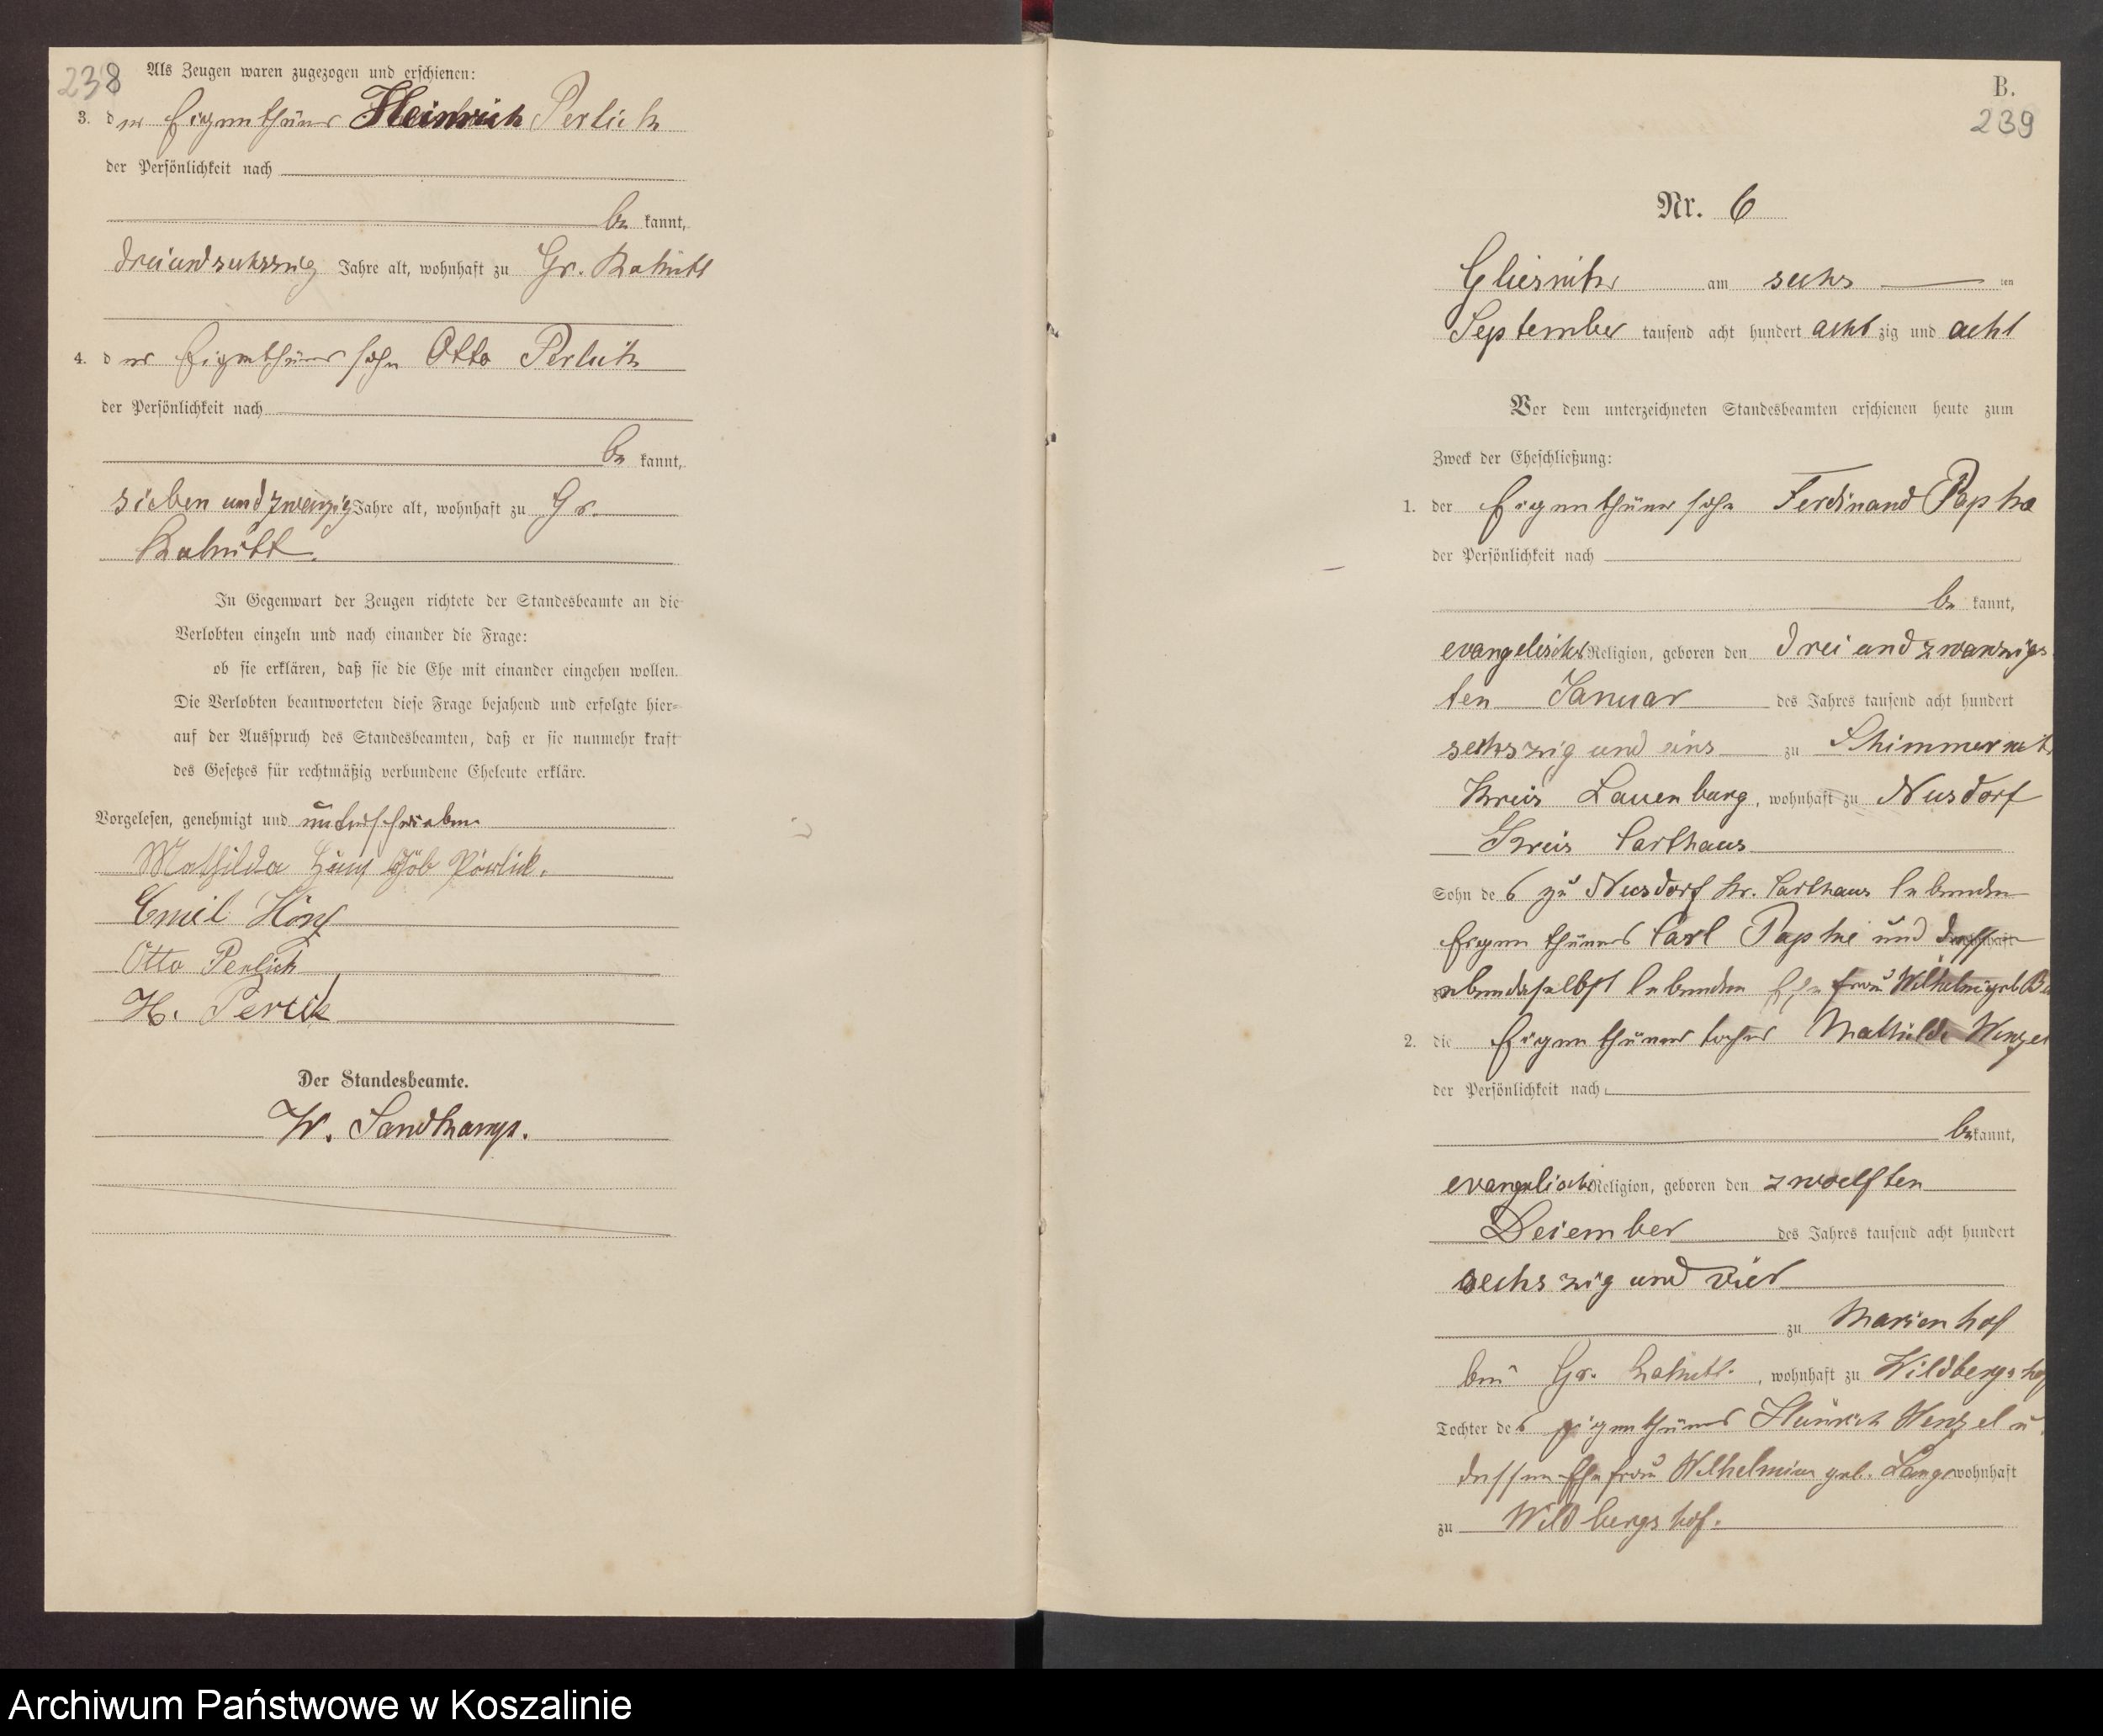 238
Als Zeugen waren zugezogen und erschienen:
3. der Eigenthümer Heinrich Perlick
der Persönlichkeit nach
be kannt,
dreiundsechszig Jahre alt, wohnhaft zu Gr. Rakitt
4. der Eigenthümersohn Otto Perlick
der Persönlichkeit nach
be kannt,
sieben und zwanzig Jahre alt, wohnhaft zu Gr.
Rakitt.
In Gegenwart der Zeugen richtete der Standesbeamte an die
Verlobten einzeln und nach einander die Frage:
ob sie erklären, daß sie die Ehe mit einander eingehen wollen.
Die Verlobten beantworteten diese Frage bejahend und erfolgte hier-
auf der Ausspruch des Standesbeamten, daß er sie nunmehr kraft
des Gesetzes für rechtmäßig verbundene Eheleute erkläre.
Vorgelesen, genehmigt und unterschrieben
Mathilda
Emil
Otto Perlick
H. Perlick
Der Standesbeamte.
W. Sandkamp.
B.
239
Nr. 6
Gliesnitz am sechs ten
September tausend acht hundert acht zig und acht
Vor dem unterzeichneten Standesbeamten erschienen heute zum
Zweck der Eheschließung:
1. der Eigenthümersohn Ferdinand Papke
der Persönlichkeit nach
be kannt,
evangelischer Religion, geboren den drei und zwanzigs
ten Januar des Jahres tausend acht hundert
sechszig und eins zu
Kreis Lauenburg, wohnhaft zu Neudorf
Kreis Carthaus
Sohn des zu Neudorf Kr. Carthaus lebenden
Eigenthümers Carl Papke und dessen
ebendaselbst lebenden Ehefrau geb.
2. die Eigenthümertochter Mathilde Wenzel
der Persönlichkeit nach
be kannt,
evangelischer Religion, geboren den zwoelften
Dezember des Jahres tausend acht hundert
sechszig und vier
zu Marienhof
bei Gr. Rakitt, wohnhaft zu Wildbergshof
Tochter des Eigenthümers Heinrich Wenzel u.
dessen Ehefrau Wilhelmine geb. Lange wohnhaft
zu Wildbergshof.
Archiwum Państwowe w Koszalinie